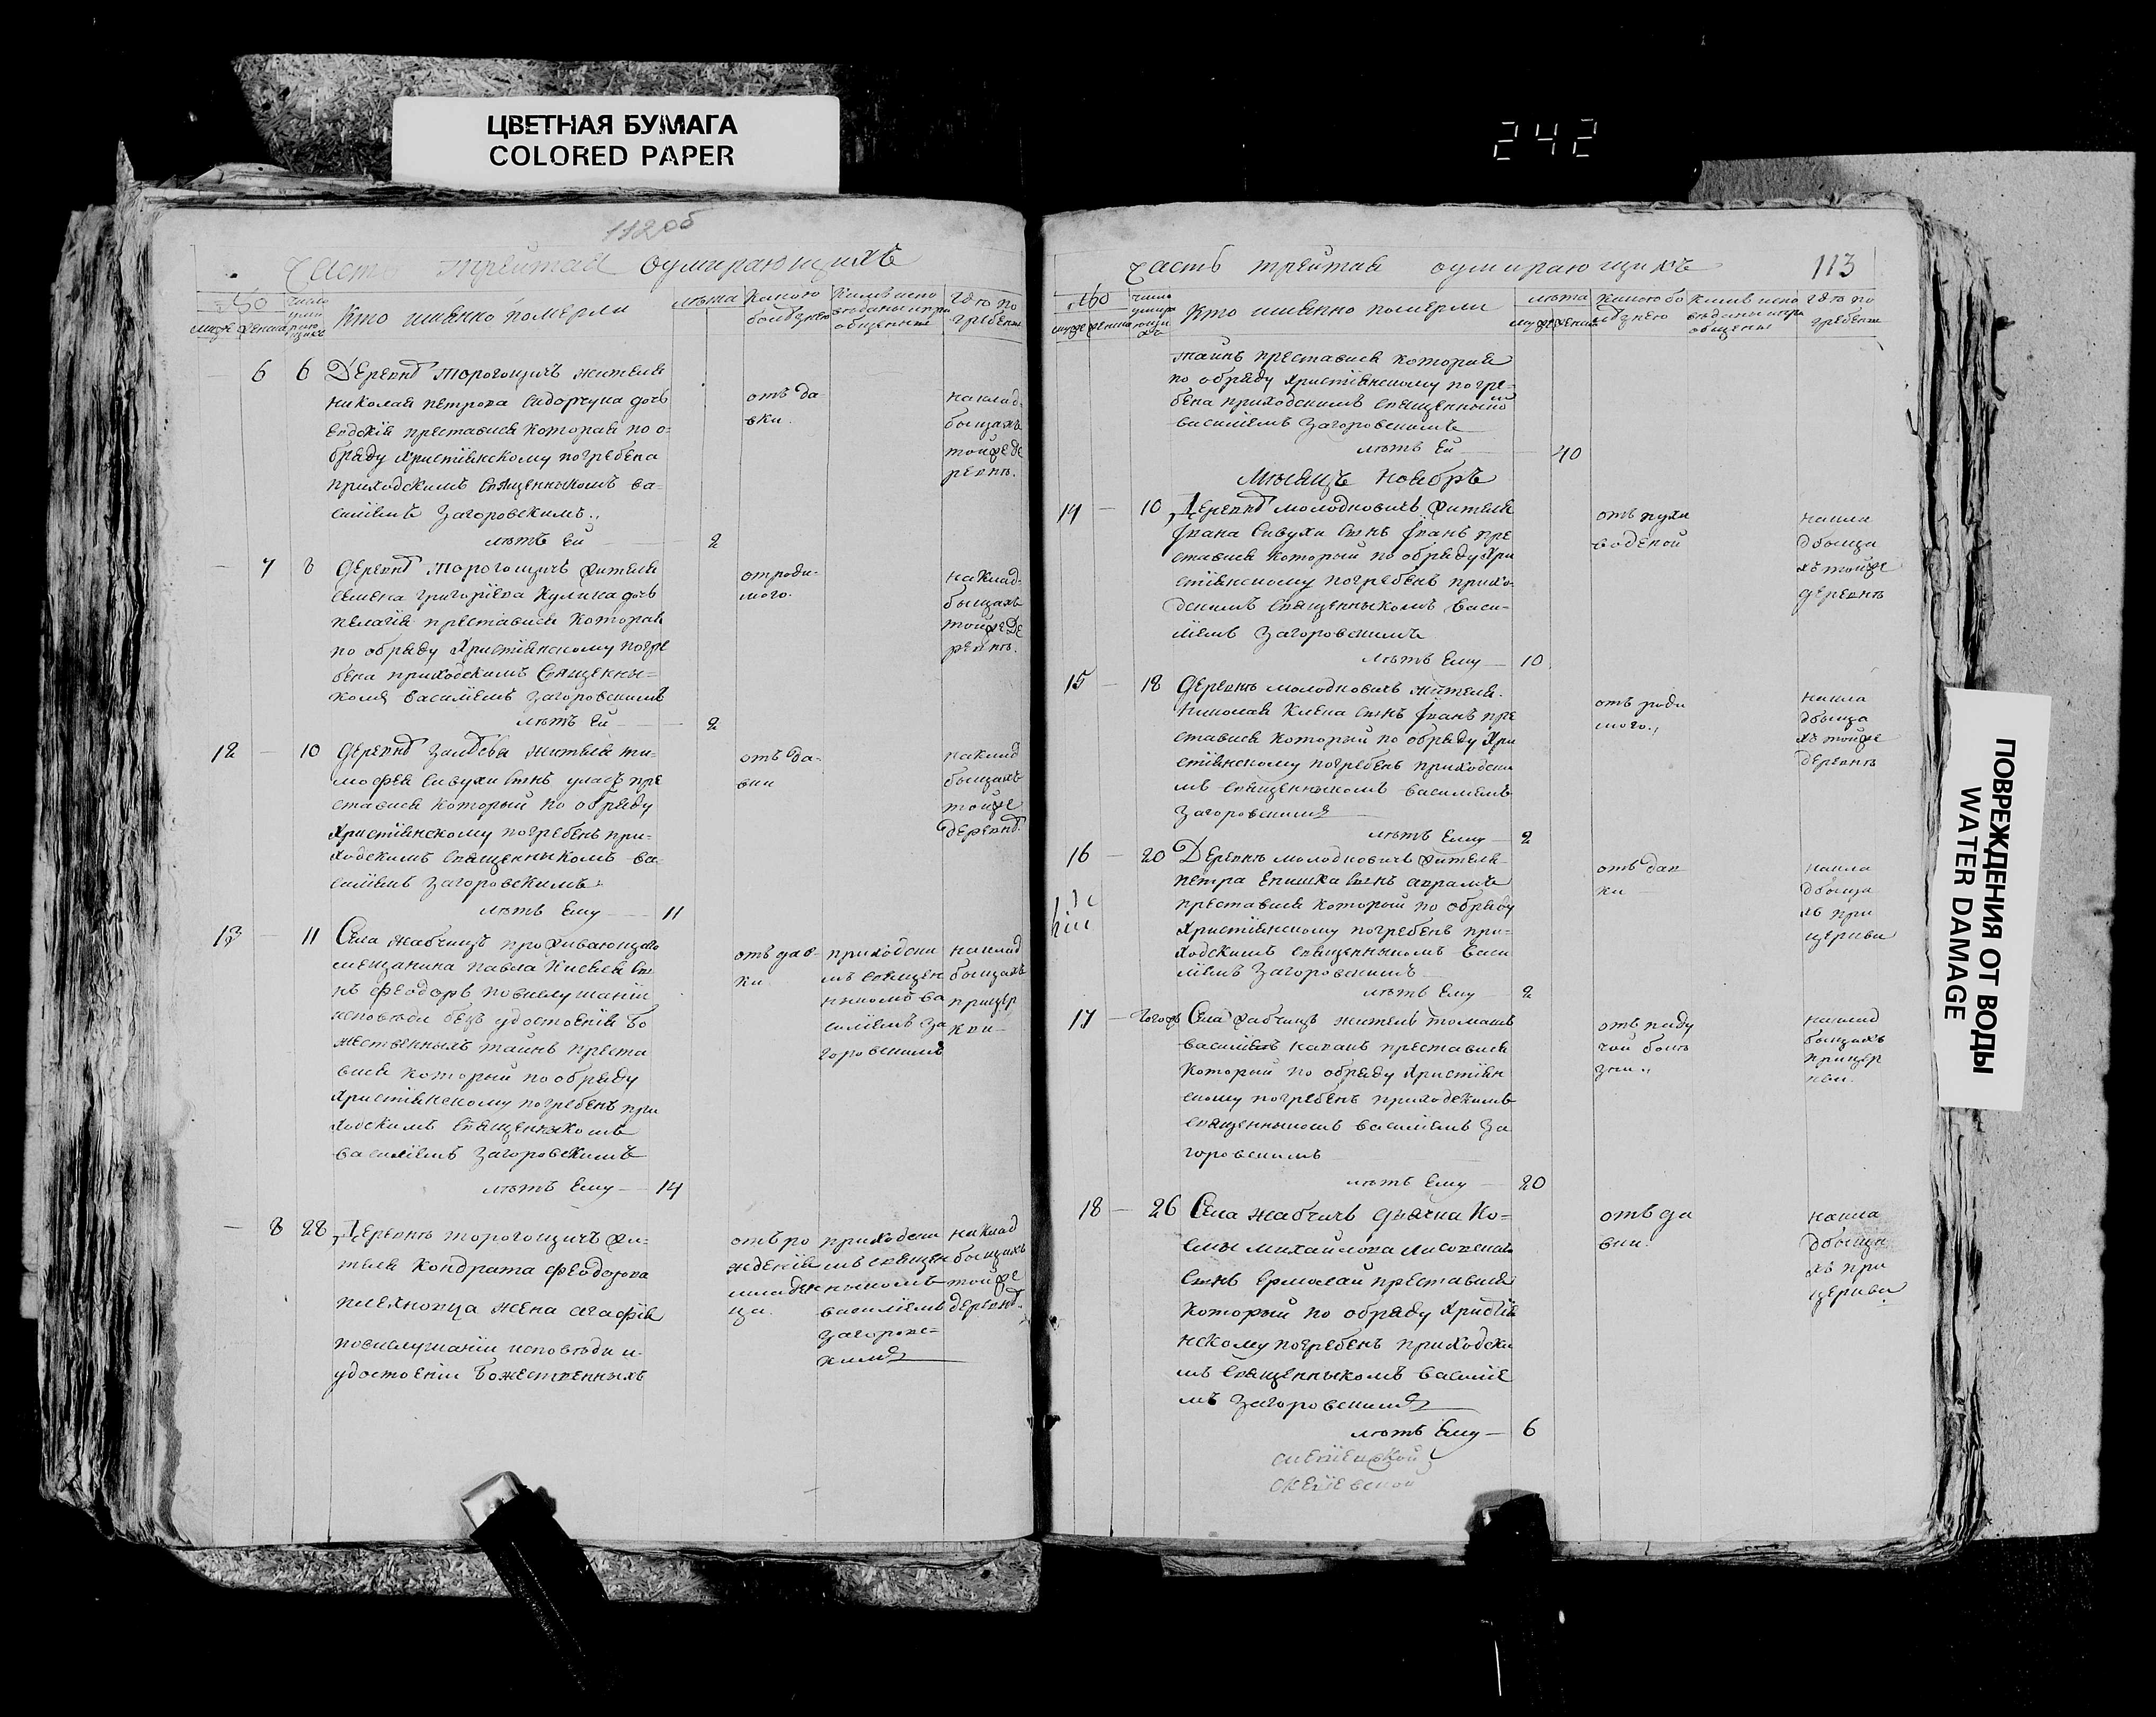 ЦВЕТНАЯ БУМАГА
COLORED PAPER
242
112об
Часть третая оумирающихъ
Кто именно померли
лѣта
6 6 Деревнѣ Торогощичъ жителя
николая петрова сидорчука дочь
преставися которая по о-
бряду христіянскому погребена
приходскимъ священникомъ ва-
силіемъ Загоровскимъ.
лѣтъ Ей 2
отъ да-
вки.
наклад-
бищахъ
тойже де
ревнѣ.
7 8 Деревнѣ Торогощичъ жителя
семена григоріева кулика дочь
пелагія преставися которая
по обряду христіянскому погре
бена приходскимъ священны-
комъ василіемъ загоровскимъ
лѣтъ Ей 2
отроди-
мого.
наклад-
бищахъ
тойже де
ревнѣ.
12 10 Деревнѣ жителя ти-
мофея сивухи сынъ уласъ пре
стависи который по обряду
христіянскому погребенъ при-
ходскимъ священныкомъ ва-
силіемъ загоровскимъ
лѣтъ Ему 11
отъ да-
вки
наклад
бищахъ
тойже
деревнѣ.
13 11 Села жабчицъ проживающаго
мещанина павла сы
нъ феодоръ повислушаніи
исповѣди безъ удостоенія бо
жественныхъ таинъ преста
вися который по обряду
христіянскому погребенъ при
ходскимъ священныкомъ
василіемъ загоровскимъ
лѣтъ Ему 14
отъ дав-
ки.
приходски
мъ священ
ныкомъ ва
силіемъ За
горовскимъ
наклад
бищахъ
прицер
кви-
8 28 Деревнѣ торогощичъ жи-
теля кондрата феодорова
жена агафія
повислушаніи исповѣди и
удостоеніи божественныхъ
отъ ро
жденія
младен
ца.
приходски
мъ священ
ныкомъ
василіемъ
загоровс-
кимъ
наклад
бищахъ
тойже
деревнѣ.
Часть третая оумирающихъ 113
Кто именно померли
лѣта
таинъ преставися которая
по обряду христіянскому погре-
бена приходскимъ священныко
василіемъ Загоровскимъ
лѣтъ Ей 40
Мѣсяцъ ноябръ
14 10 Деревнѣ молодковичъ жителя
Івана Сивухи сынъ Іванъ пре
стависи который по обряду хри
стіянскому погребенъ прихо-
дскимъ священныкомъ васи-
ліемъ Загоровскимъ
лѣтъ Ему 10
отъ пухл
водяной
накла
дбища
хъ тойже
деревнѣ
15 18 Деревнѣ молодковичъ жителя
николая сынъ Іванъ пре
стависи который по обряду хри
стіянскому погребенъ приходски
мъ священныкомъ василіемъ
Загоровскимъ
лѣтъ Ему 2
отъ роди
мого.,
накла
дбища
хъ тойже
деревнѣ
16 20 Деревнѣ молодковичъ жителя
петра сынъ аврамъ
преставися который по обряду
христіянскому погребенъ при-
ходскимъ священныкомъ васи
ліемъ Загоровскимъ
лѣтъ Ему 2
отъ дав
ки
накла
дбища
хъ при
церкви
17 Села жабчицъ житель томашъ
василіевъ преставися
который по обряду христіян
скому погребенъ приходскимъ
священныкомъ василіемъ За
горовскимъ
лѣтъ Ему 20
отъ паду
чой болѣ
зни.,
наклад
бищахъ
прицер
кви.
18 26 Села жабчичъ дячка Ко-
смы михайлова
сынъ Ермолай преставися
который по обряду христія
нскому погребенъ приходски
мъ священныкомъ василіе
мъ Загоровскимъ
лѣтъ Ему 6
отъ да
вки.
накла
дбища
хъ при
церкви
ПОВРЕЖДЕНИЯ ОТ ВОДЫ
WATER DAMAGE